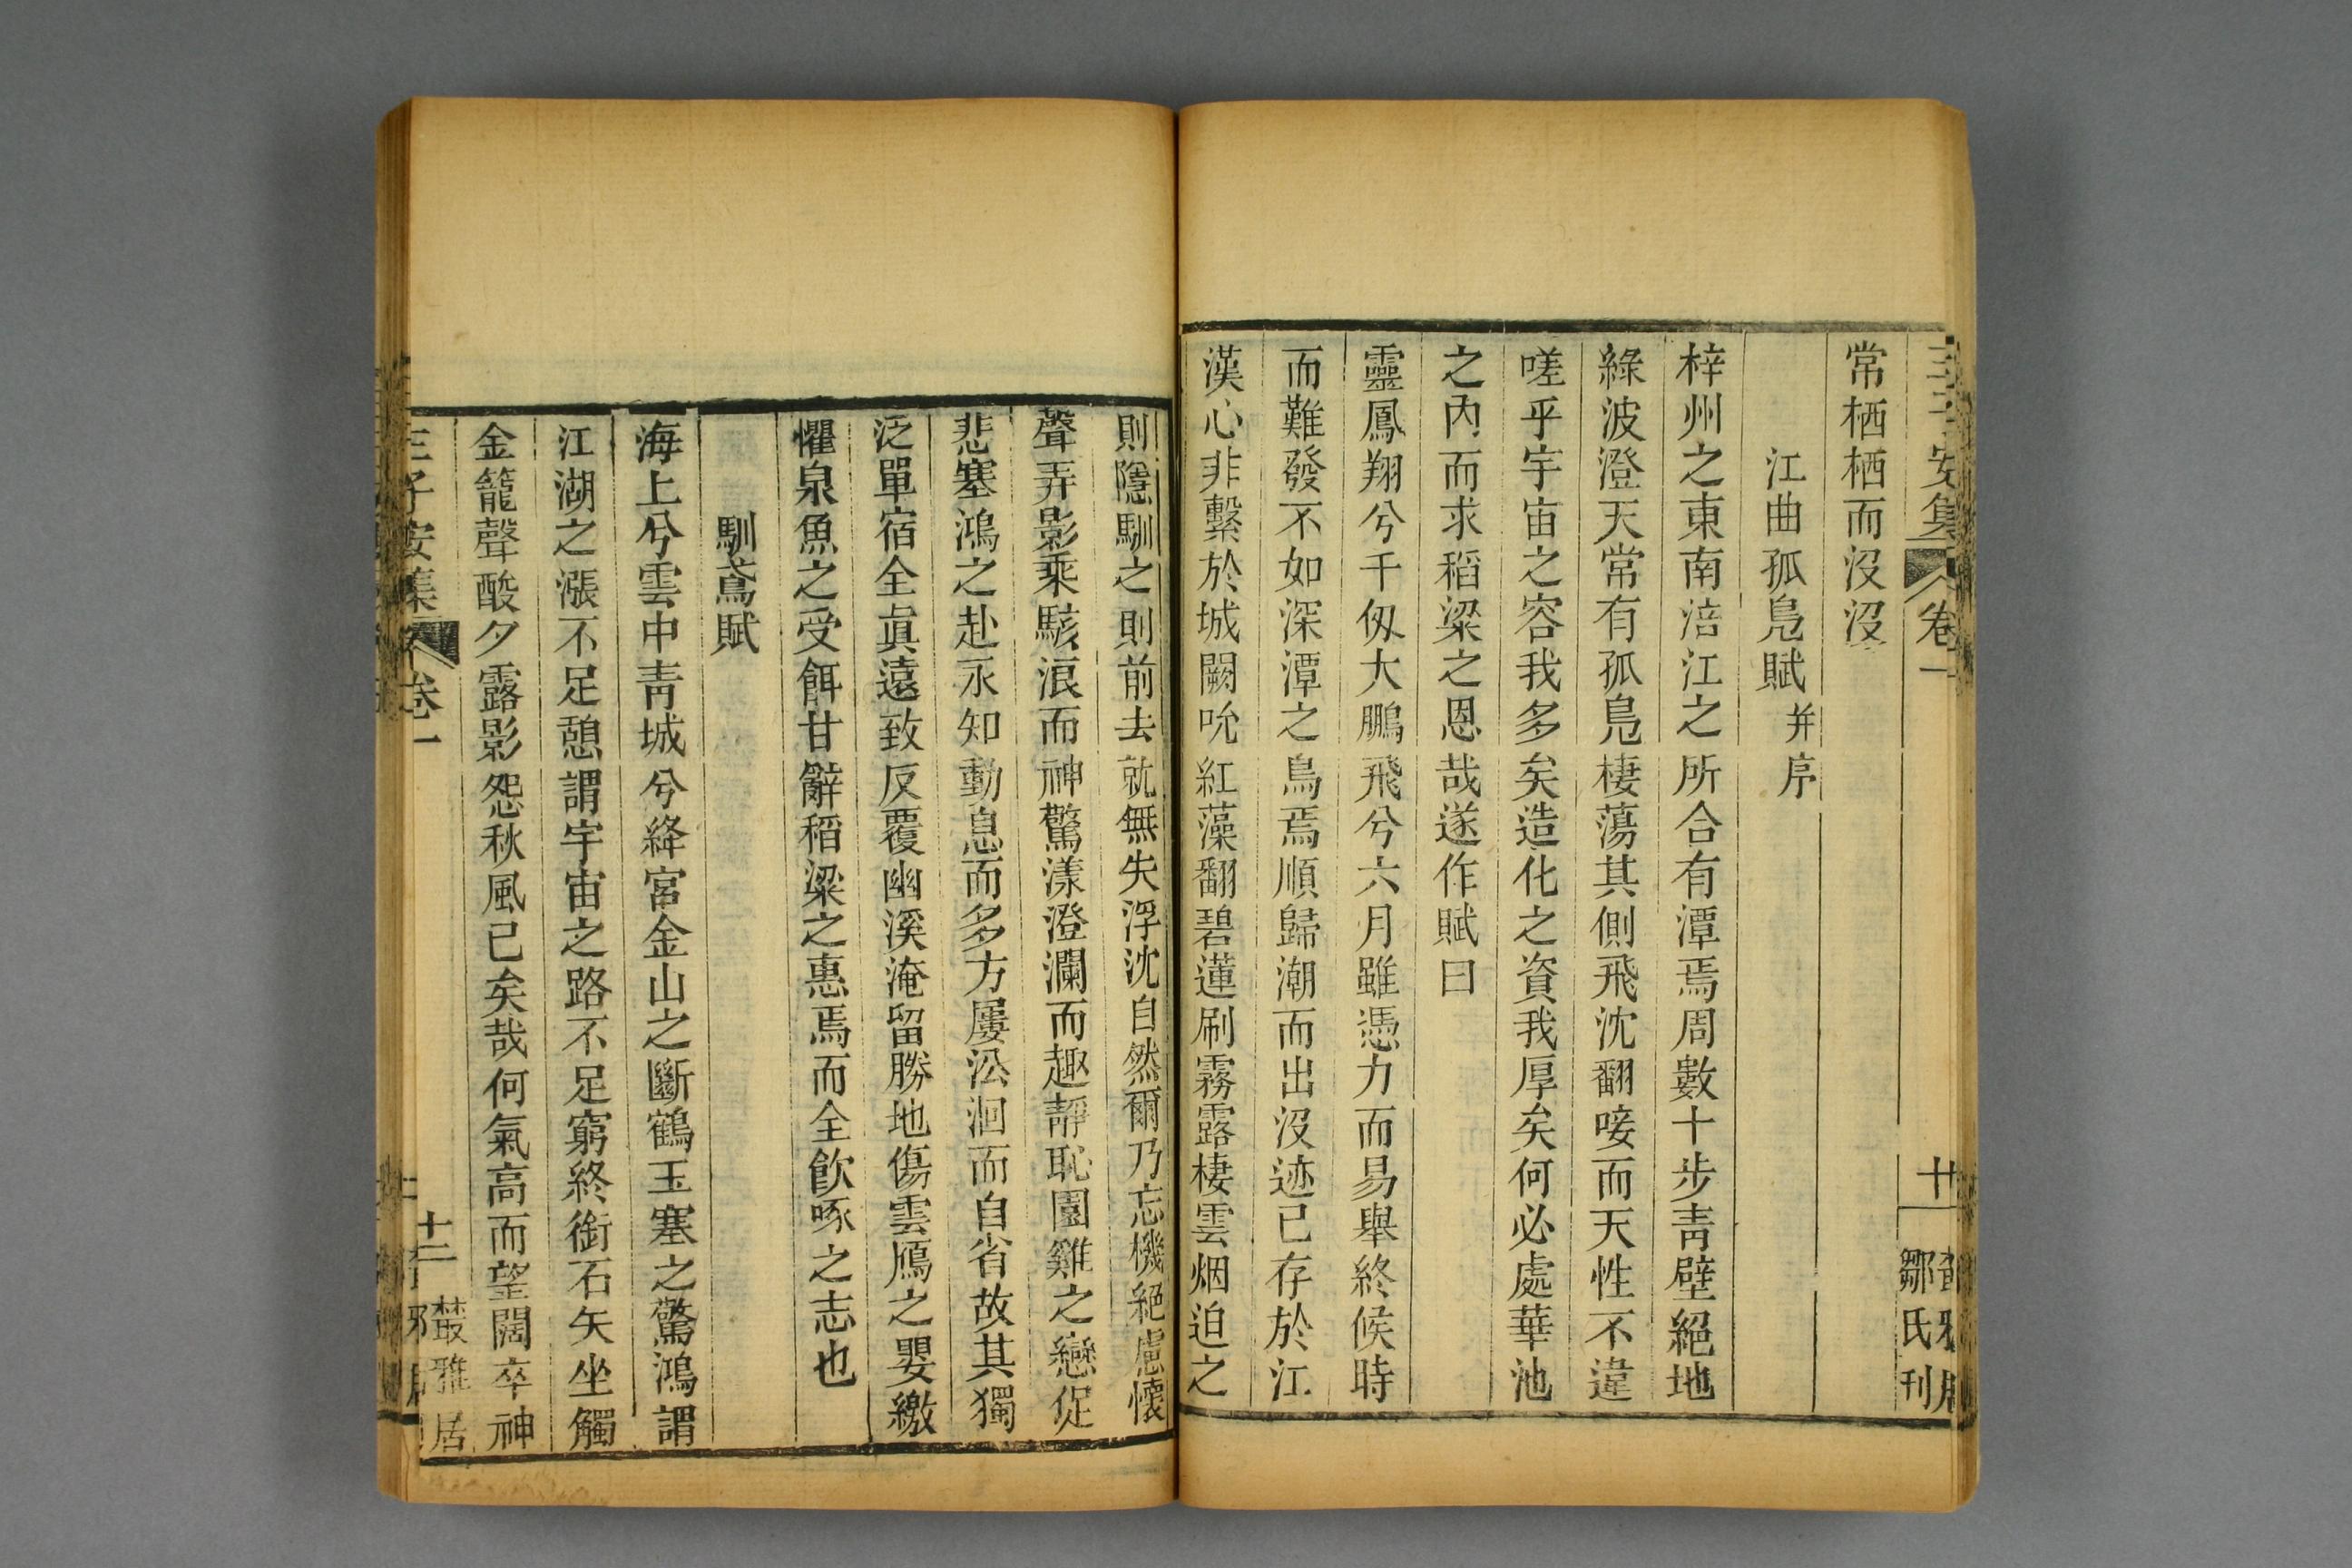 王子安集 卷一 十一 鄒氏刊
常栖栖而沒沒
江曲孤鳧賦并序
梓州之東南涪江之所合有潭焉周數十步靑壁絕地
綠波澄天常有孤鳧棲蕩其側飛沈翻唼而天性不違
嗟乎宇宙之容我多矣造化之資我厚矣何必處華池
之內而求稻粱之恩哉遂作賦曰
靈鳳翔兮千仭大鵬飛兮六月雖憑力而易舉終候時
而難發不如深潭之鳥焉順歸潮而出沒迹已存於江
漢心非繫於城闕吮紅藻翻碧蓮刷霧露棲雲烟迫之
則隱馴之則前去就無失浮沈自然爾乃忘機絕慮懷
聲弄影乘駭浪而神驚漾澄瀾而趣靜恥園雞之戀促
悲塞鴻之赴永知動息而多方屢㳂洄而自省故其獨
泛單宿全眞遠致反覆幽溪淹留勝地傷雲鴈之嬰繳
懼泉魚之受餌甘辭稻粱之惠焉而全飮啄之志也
馴鳶賦
海上兮雲中靑城兮絳宮金山之斷鶴玉塞之驚鴻謂
江湖之漲不足憩謂宇宙之路不足窮終銜石矢坐觸
金籠聲酸夕露影怨秋風已矣哉何氣高而望闊卒神
王子安集 卷一 十二 叢雅居